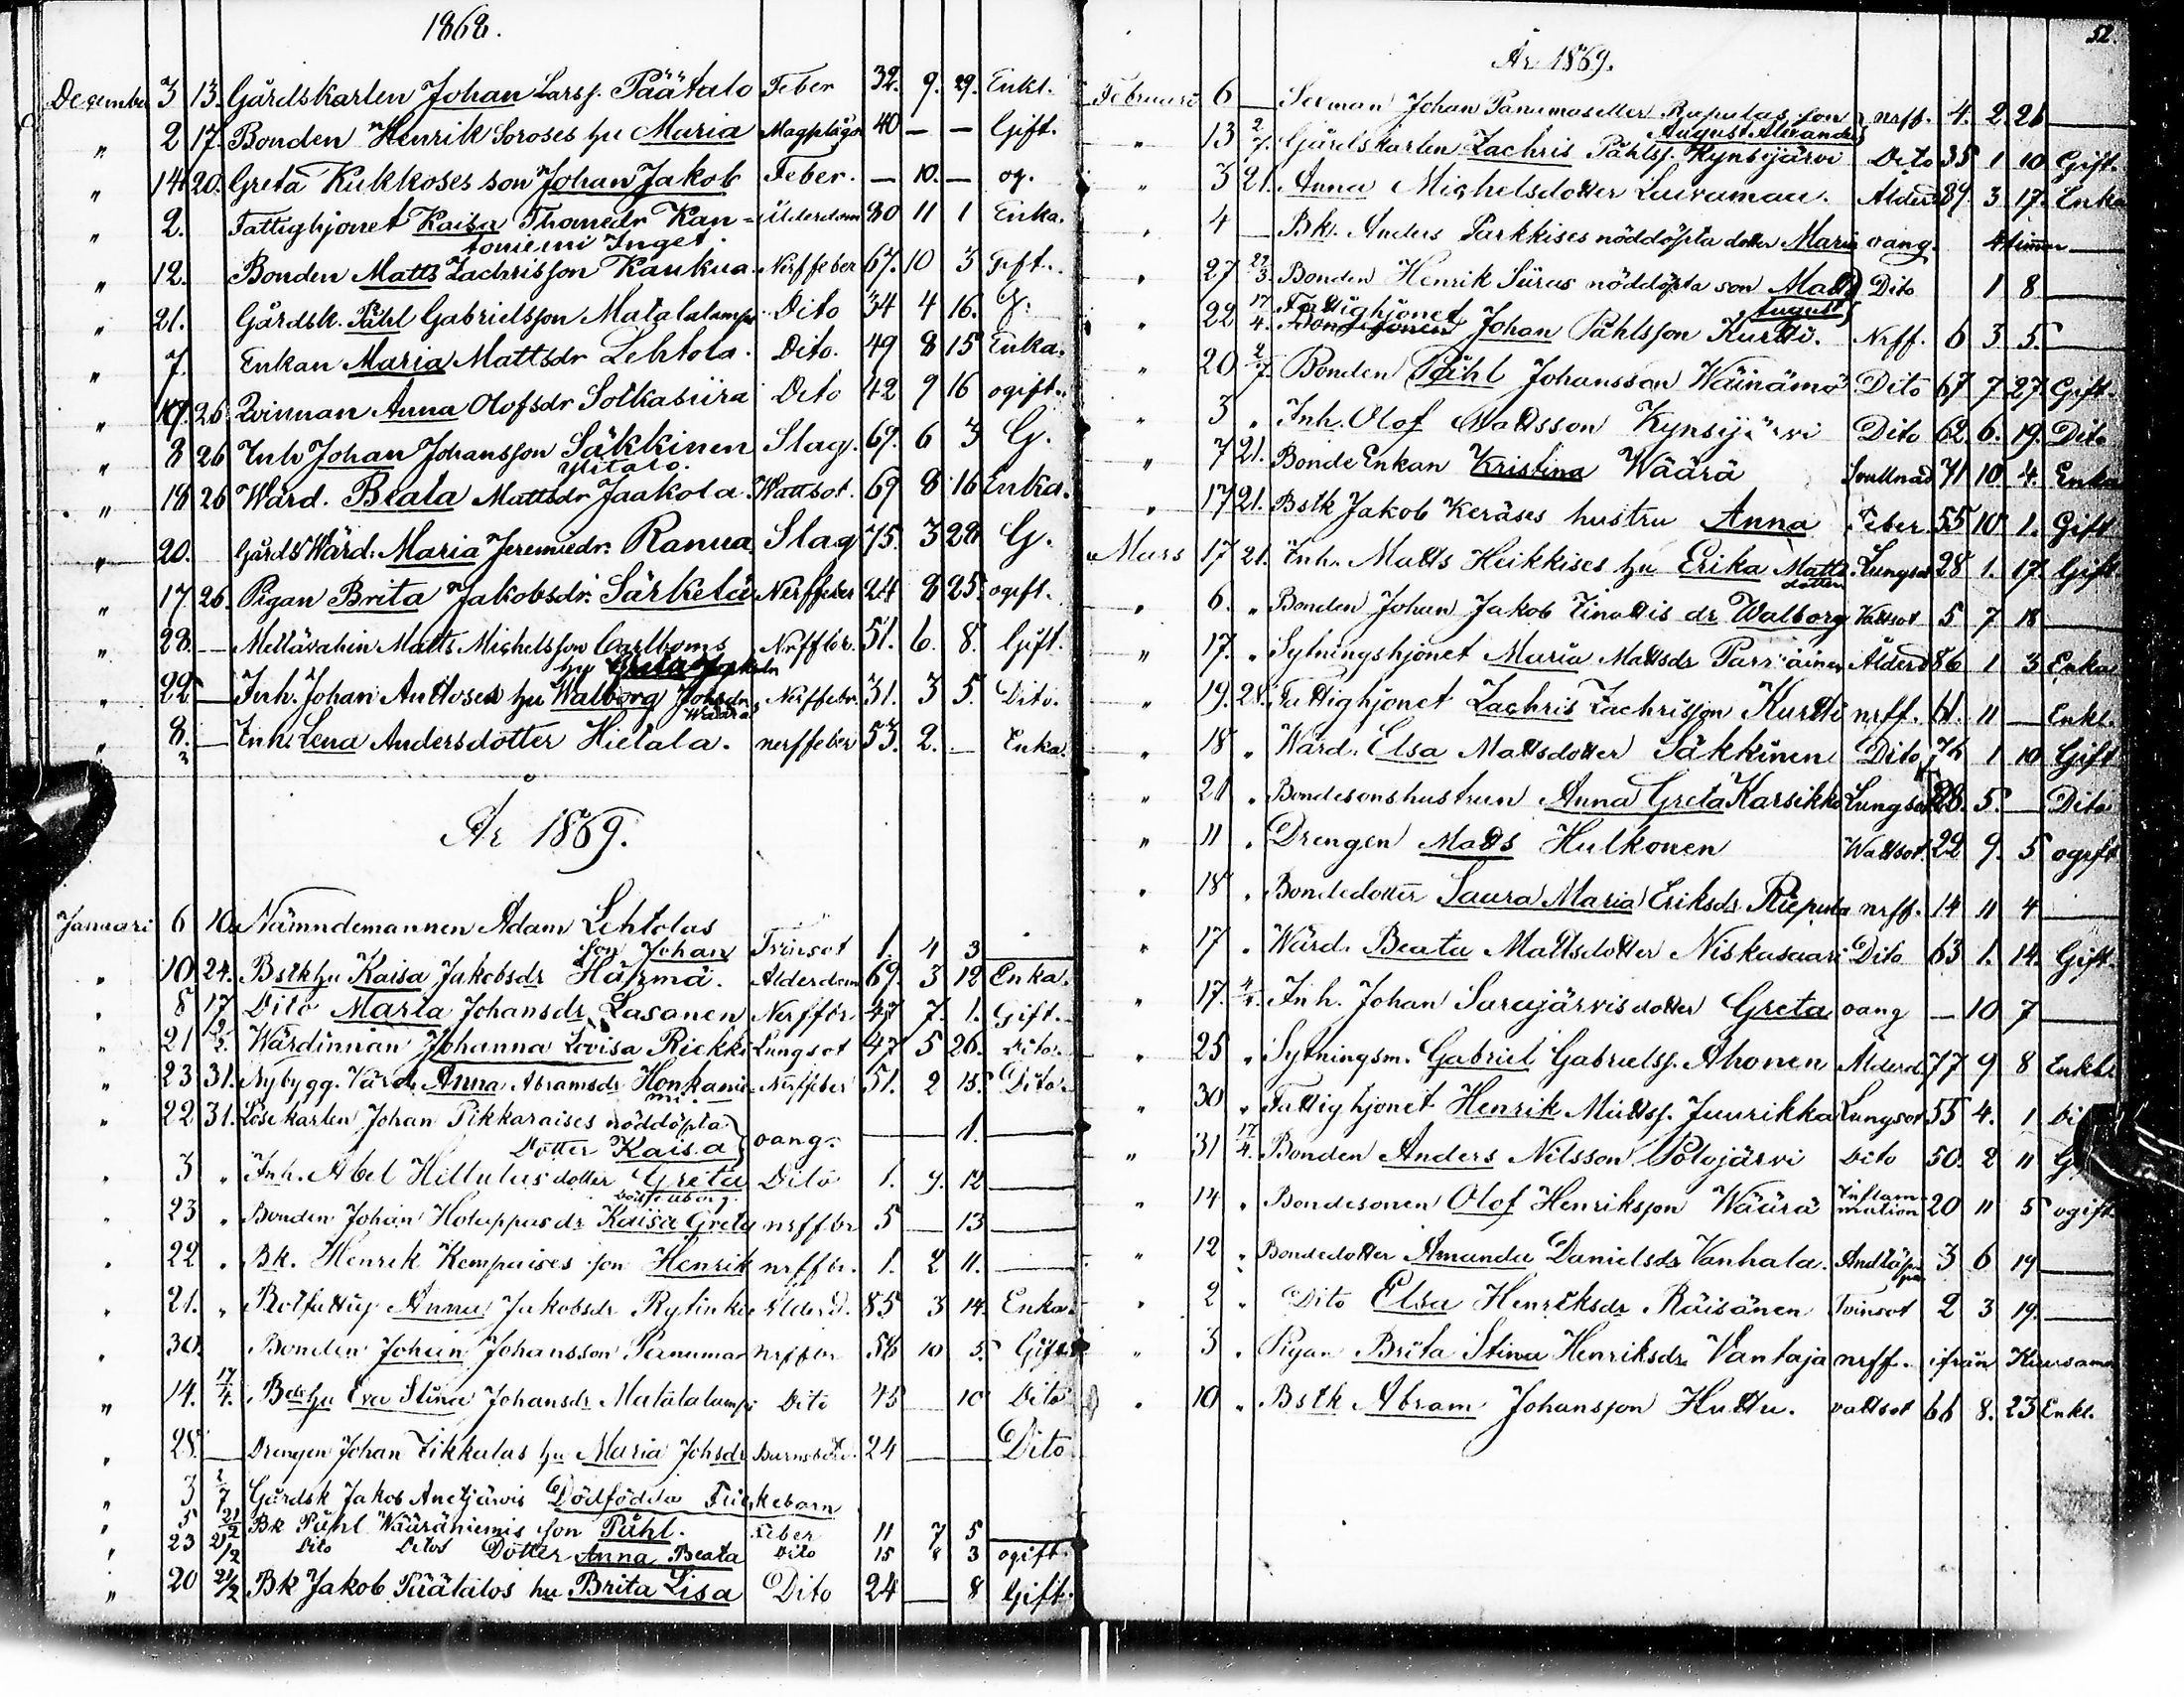 1868.
December 3 13. Gårdskarlen Johan Larsf. Päätalo Feber 32. 9. 29. Enkl.
" 2 17. Bonden Henrik Soroses hu Maria Magplågor 40 — — Gift.
" 14 20. Greta Kukkoses son Johan Jakob Feber. — 10. — og.
" 2. Fattighjonet Kaisa Thomedr Kan= Ålderdom 80 11 1 Enka.
toniemi Inget.
" 12. Bonden Matts Zachrisson Kaukua. Nerffeber 67. 10 3 Gift.
" 21. Gårdsk. Påhl Gabrielsson Matalalampi Dito 34 4 16. G.
" 7. Enkan Maria Mattsdr Lehtola. Dito. 49 8 15 Enka.
" 19. 26 Qvinnan Anna Olofsdr Sotkasiira Dito 42 9 16 ogift.
" 8 26 Inh Johan Johansson Säkkinen Slag. 69. 6 3 G.
Ylitalo.
" 18 26 Wärd. Beata Mattsdr Jaakola. Wattsot. 69 8 16 Enka.
" 20. Gårds Wärd. Maria Jeremiedr. Ranua Slag 75. 3 28 G.
" 17 26. Pigan Brita Jakobsdr. Särkelä Nerffeber 24 8 25 ogift.
" 28. — Matts Michelsson Carlboms Nerffbr. 51. 6. 8. Gift.
hu Greta
" 22 — Inh. Johan Anttoses hu Walborg Johsdr Nerffebr. 31. 3 5. Dito.
Wäärä
" 8. — Inh. Lena Andersdotter Hietala. nerffeber 53. 2. — Enka.
År 1869.
Januari 6 10. Nämndemannen Adam Lehtolas
son Johan Tvinsot 1. 4 3
" 10. 24. Bstk hu Kaisa Jakobsdr Härmä. Alderdom 69. 3 12 Enka.
" 8 17 Dito Maria Johansdr Lasanen Nerffbr 47 7. 1. Gift.
" 21 Wärdinnan Johanna Lovisa Riekki Lungsot 47 5 26. Dito.
" 23 31. Nybygg. Värd. Anna Abramsdr Honkanie Nerffeber 51. 2 15. Dito.
mi.
" 22 31. Lösekarlen Johan Pikkaraises nöddöpta
Dotter Kaisa } oang. — — 1. —
" 3 " Inh. Abel Hiltulus dotter Greta Dito 1. 9. 12 —
" 23 " Bonden Johan Holappas dr Kaisa Greta nrffbr 5 — 13 —
" 22 " Bk. Henrik Kempaises son Henrik nrffbr. 1. 2 11. —
" 21. " Rotfattig Anna Jakobsdr Rytinki Alderd. 85 3 14. Enka.
" 30. Bonden Johan Johansson Panuma nrffbr 56 10 5. Gift
" 14. 17/4. Bde hu Eva Stina Johansdr Matalalampi Dito 45 10 Dito
" 28. — Drengen Johan Tikkalas hu Maria Johsdr Barnsbörd. 24 — — Dito
" 3 2/7 Gårdsk Jakob Anetjärvis Dödfödda Flickebarn
" 5 21/2 Bk Påhl Wääräniemis son Påhl. Feber 11 7 5 —
" 23 21/2 Dito Ditos Dotter Anna Beata Dito 15 " 3 ogift.
" 20 21/2 Bk Jakob Päätalos hu Brita Lisa Dito 24 — 8 Gift.
52.
År 1869.
Februari 6 — Sexman Johan Panumas eller Riepulas son } nrff. 4. 2. 21 —
August Alexander
" 13 2/7. Gårdskarlen Zachris Påhlsf. Kynsijärvi Dito 35 1 10 Gift.
" 3 21. Anna Michelsdotter Luiramaa. Alderd 89. 3 17. Enka
" 4 — Bk. Anders Parkkises nöddöpta dotter Maria oang. 4 timmar —
" 27 27/3. Bonden Henrik Siiras nöddöpta son Matts } Dito 1 8 —
August
" 22 17/4. Fattighjonet Johan Påhlsson Kurtti. Nrff. 6 3 5. —
" 20 2/7. Bonden Påhl Johansson Wäinämö Dito 67 7 27 Gift.
" 3 " Inh. Olof Mattsson Kynsijärvi Dito 62. 6. 19. Dito
" 7 21. Bonde Enkan Kristina Wäärä 71 10 4. Enka
" 17 21. Bstk Jakob Keräses hustru Anna Feber 55 10 1. Gift
Mars 17 21. Inh. Matts Heikkises hu Erika Matts Lungsot 28 1. 17. Gift
dotter
" 6. " Bonden Johan Jakob Tinattis dr Walborg Vattsot 5 7 18 —
" 17. " Sytningshjonet Maria Mattsdr Parviainen Alderd 86 1 3 Enka
" 19. 28. Fattighjonet Zachris Zachrisson Kurtti nrff. 61. 11 — Enkl.
" 18 " Wärd. Elsa Mattsdotter Säkkinen Dito 76 1 10 Gift
" 21 " Bondesonshustrun Anna Greta Karsikko Lungsot 28. 5. — Dito
" 11 " Drengen Matts Hulkonen Wattsot. 22 9. 5 ogift
" 18 " Bondedotter Laura Maria Eriksdr Riepula nrff. 14 11 4 —
" 17 " Wärd. Beata Mattsdotter Niskasaari Dito 63 1. 14. Gift.
" 17. 4/4. Inh. Johan Sarajärvis dotter Greta oang — 10 7 —
" 25 " Sytningsm. Gabriel Gabrielsf. Ahonen Alderd. 77 9 8 Enkl.
" 30 " Fattighjonet Henrik Mattsf. Juurikka Lungsot 55 4. 1 Di
" 31 17/4. Bonden Anders Nilsson Polojärvi Dito 50. 2 11 G
" 14 " Bondesonen Olof Henriksson Wäärä Inflam- 20 11 5 ogift
mation
" 12 " Bondedotter Amanda Danielsdr Vanhala. 3 6 19 —
" 2 " Dito Elsa Henriksdr Räisänen Tvinsot 2 3 19. —
" 3 " Pigan Brita Stina Henriksdr Vantaja nrff. ifrån Kuusamo
" 10 " Bstk Abram Johansson Huttu. vattsot 66 8. 23 Enkl.